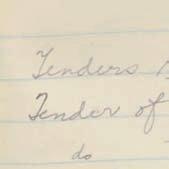 Tenders
Tender of
do